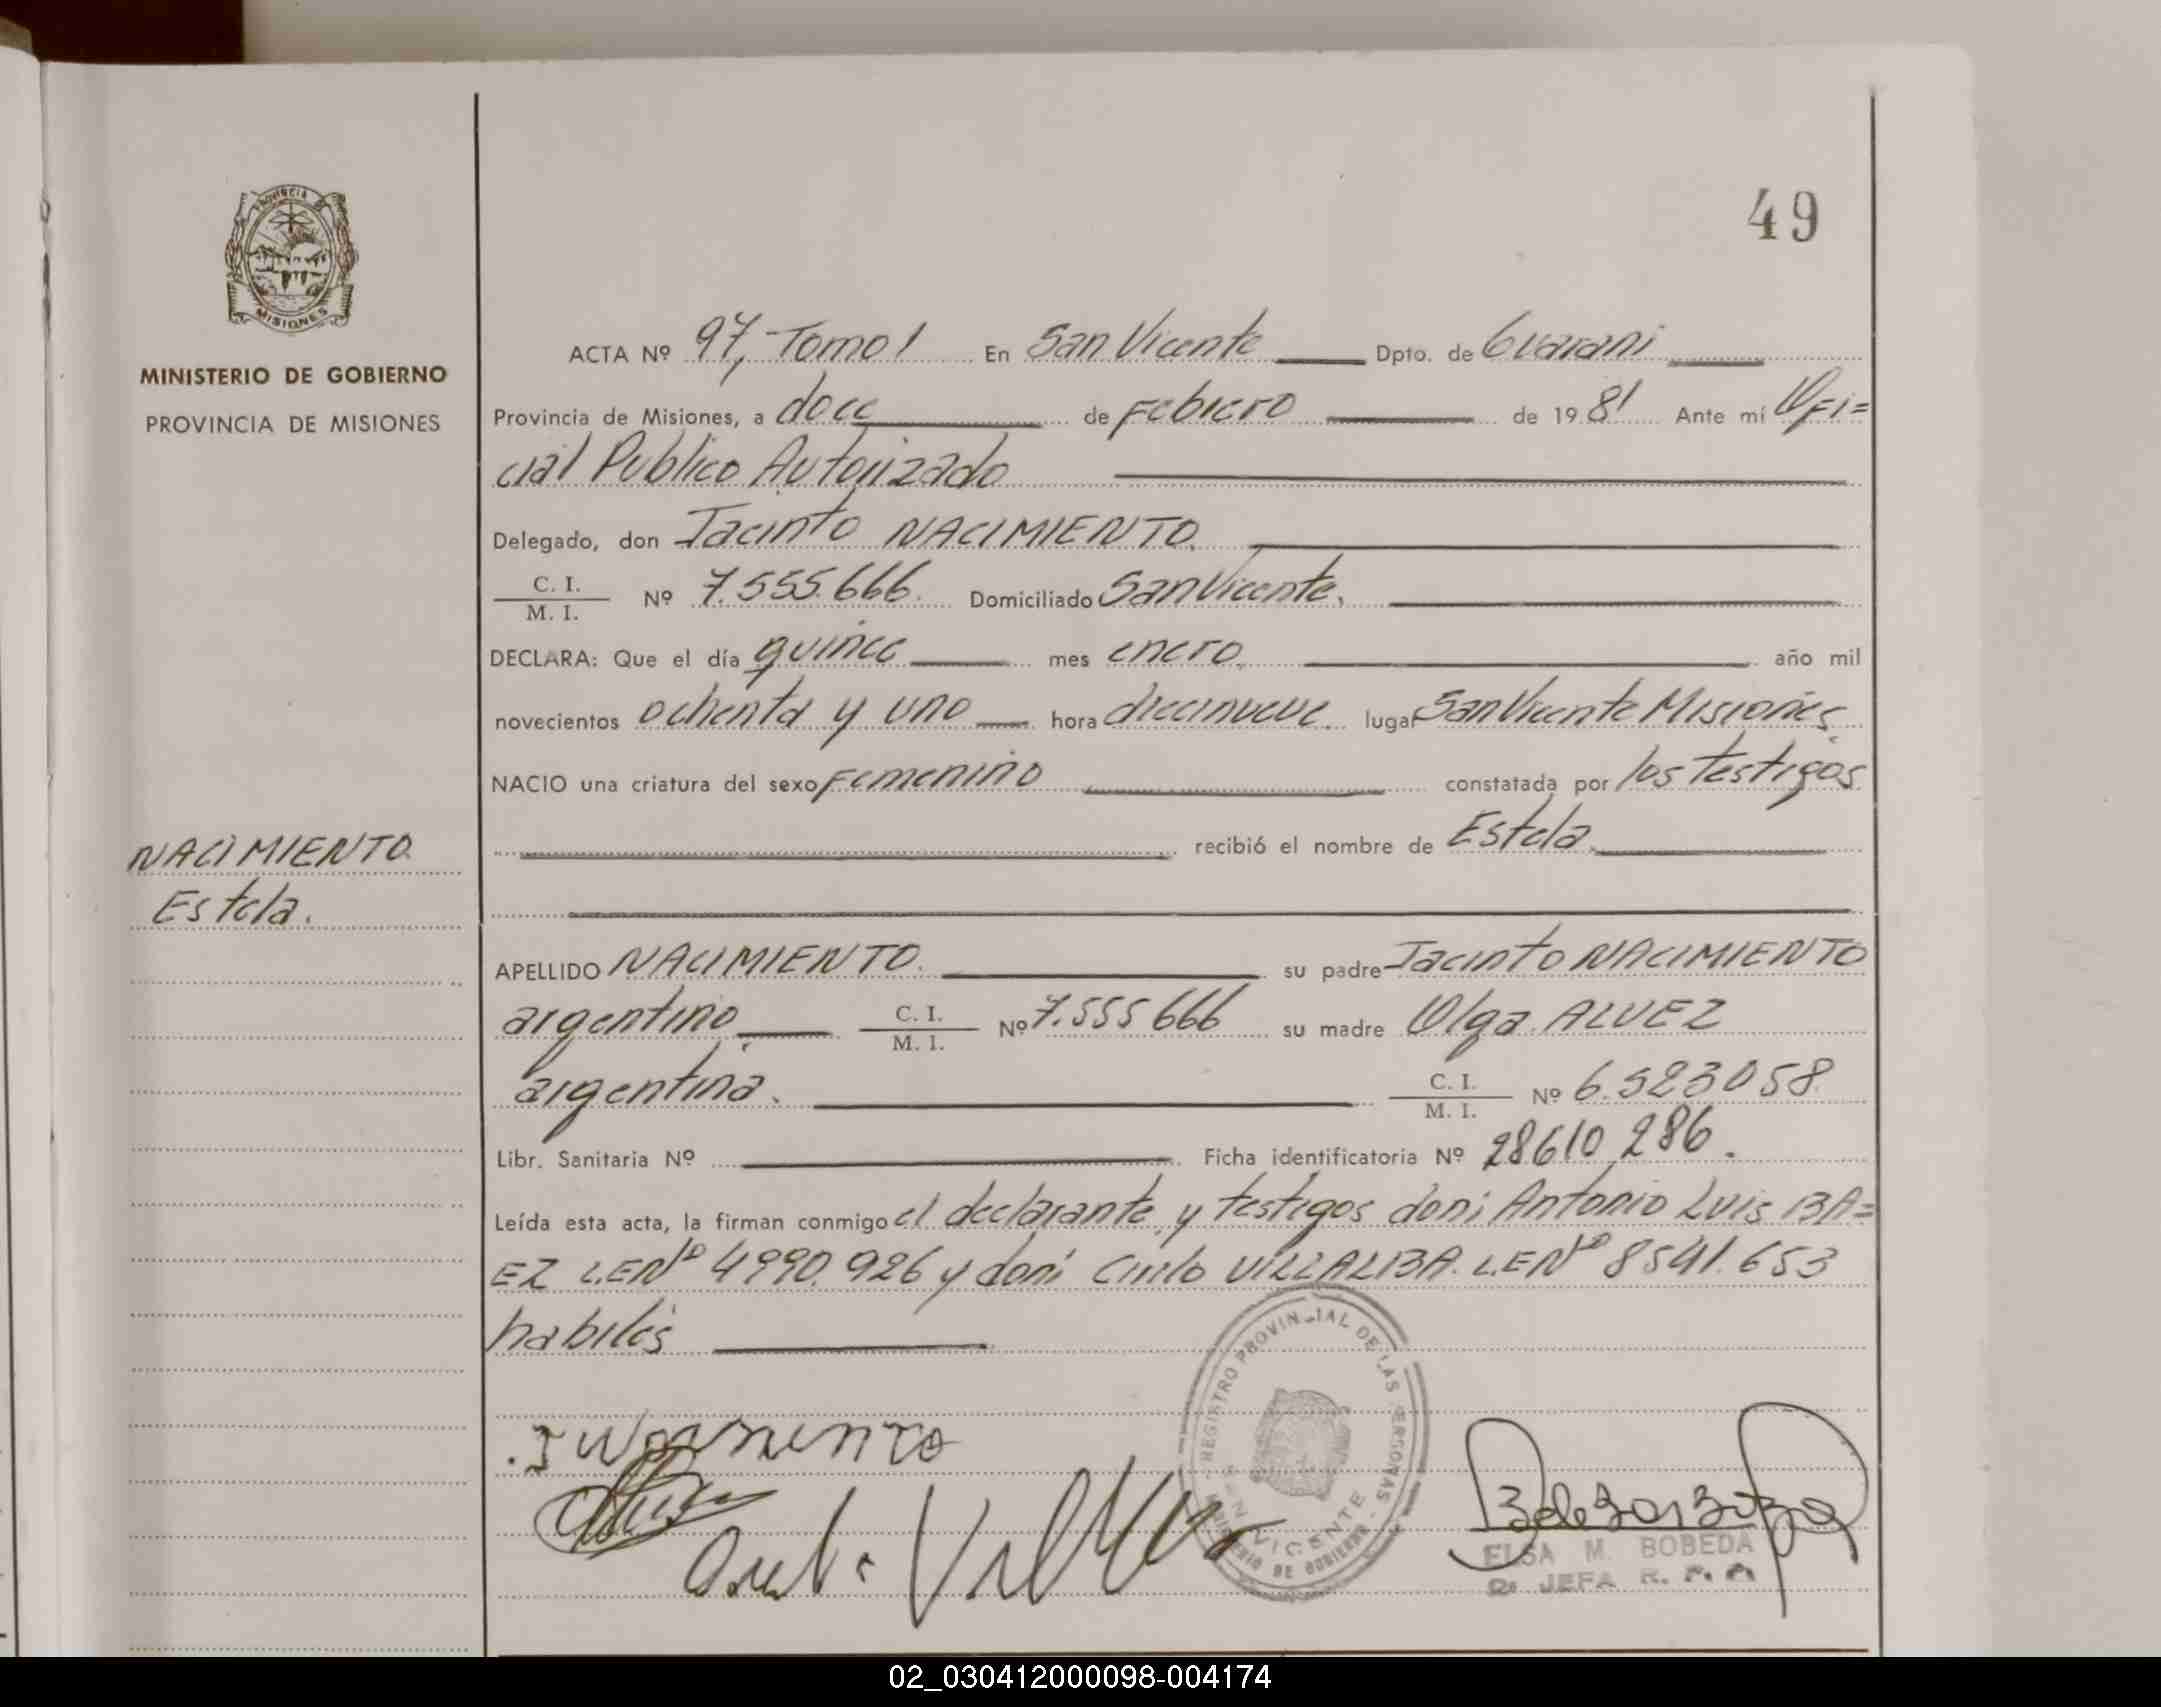 PROVINCIA
MISIONES
MINISTERIO DE GOBIERNO
PROVINCIA DE MISIONES
49
ACTA Nº 97, Tomo 1 En San Vicente Dpto. de Guarani
Provincia de Misiones, a doce de Febrero de 1981 Ante mí Ofi=
cial Publico Autorizado
Delegado, don Jacinto NACIMIENTO.
C. I.
M. I.
Nº 7.555.666. Domiciliado San Vicente.
DECLARA: Que el día quince mes enero. año mil
novecientos ochenta y uno hora diecinueve. lugar San Vicente Misiones.
NACIO una criatura del sexo Femenino constatada por los testigos
recibió el nombre de Estela.
NACIMIENTO
Estela.
APELLIDO NACIMIENTO. su padre Jacinto NACIMIENTO
argentino C. I.
M. I.
Nº 7.555 666 su madre Olga ALVEZ
argentina. C. I.
M. I.
Nº 6.523058
Libr. Sanitaria Nº Ficha identificatoria Nº 28610 286.
Leída esta acta, la firman conmigo el declarante, y testigos don: Antonio Luis BA=
EZ L.E Nº 4990.926 y don: Cirilo VILLALBA. L.E Nº 8541.653
habiles
REGISTRO PROVINCIAL DE LAS PERSONAS
SAN VICENTE
MINISTERIO DE GOBIERNO
ELSA M. BOBEDA
JEFA R. P. P.
02_030412000098-004174